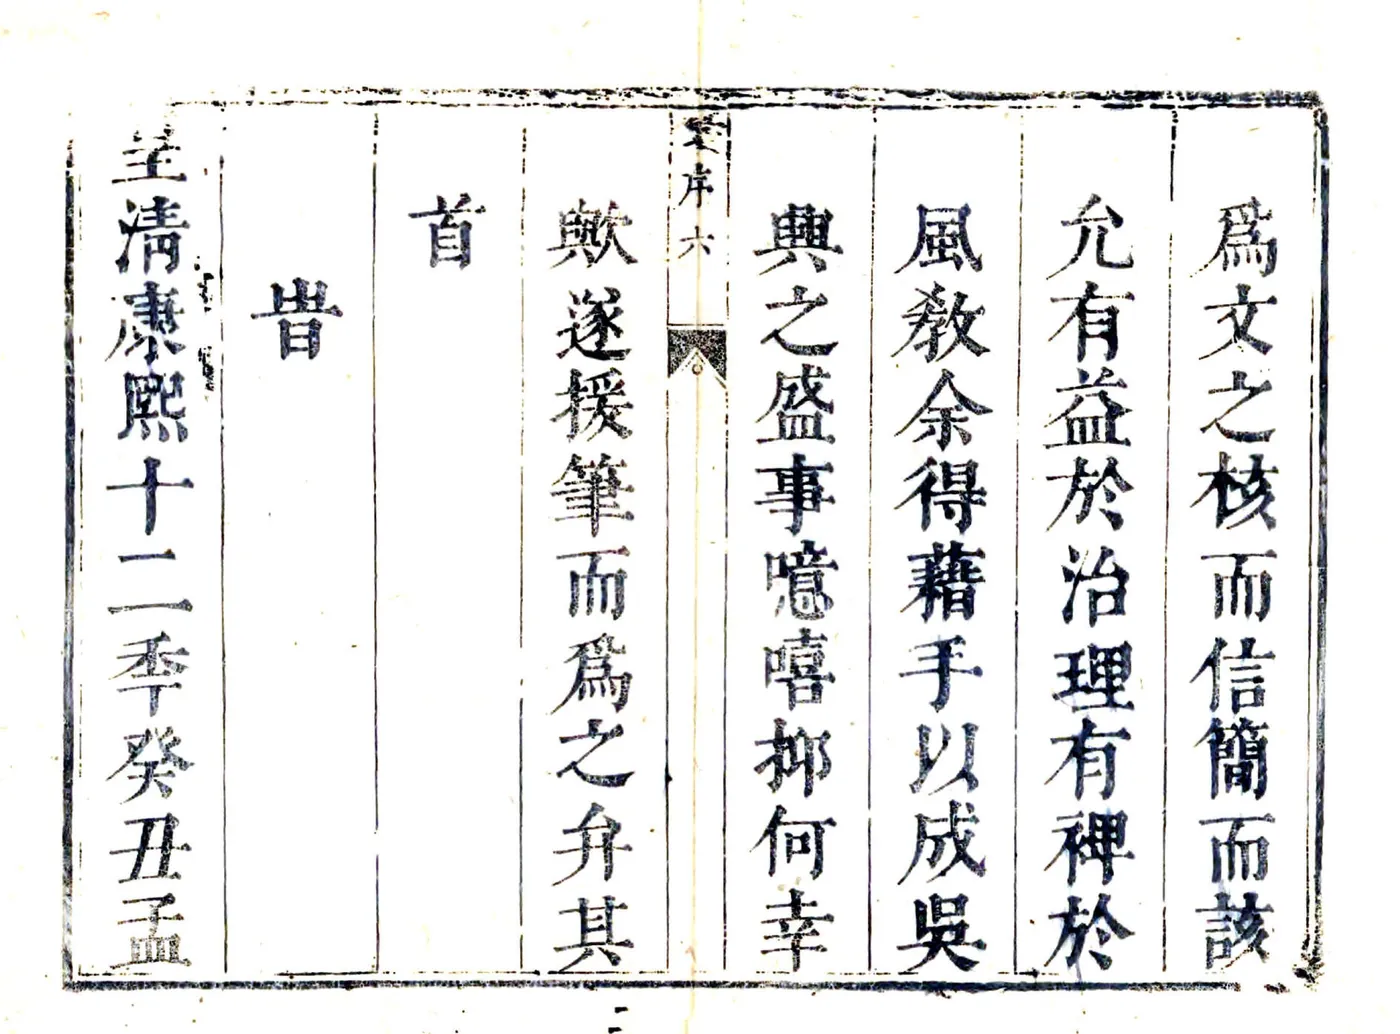 爲文之核而信簡而該
允有益於治理有裨於
風敎余得藉手以成吳
興之盛事噫嘻抑何幸
序六
歟遂援筆而爲之弁其
首
旹
皇清康熙十二秊癸丑孟